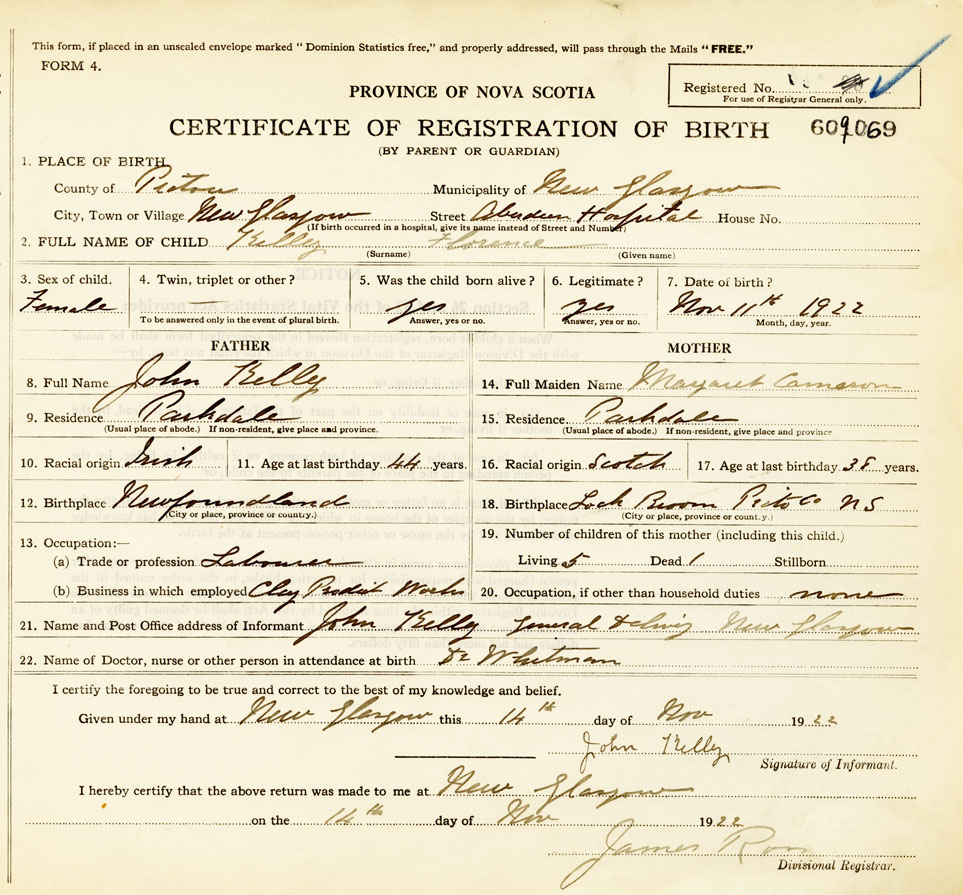 This form, if placed in an unsealed envelope marked “ Dominion Statistics free,” and properly addressed, will pass through the Mails “ FREE.”
FORM 4.
Registered No.
For use of Registrar General only.
PROVINCE OF NOVA SCOTIA
CERTIFICATE OF REGISTRATION OF BIRTH 609069
(BY PARENT OR GUARDIAN)
1. PLACE OF BIRTH
County of Pictou Municipality of New Glasgow
City, Town or Village New Glasgow Street Aberdeen Hospital House No.
(If birth occurred in a hospital, give its name instead of Street and Number)
2. FULL NAME OF CHILD Kelley Florence
(Surname) (Given name)
3. Sex of child. 4. Twin, triplet or other? 5. Was the child born alive? 6. Legitimate? 7. Date of birth?
Female yes yes Nov 11th 1922
To be answered only in the event of plural birth. Answer, yes or no. Answer, yes or no. Month, day, year.
FATHER MOTHER
8. Full Name John Kelley 14. Full Maiden Name Margaret Cameron
9. Residence Parkdale 15. Residence Parkdale
(Usual place of abode.) If non-resident, give place and province. (Usual place of abode.) If non-resident, give place and province
10. Racial origin Irish 11. Age at last birthday 44 years. 16. Racial origin Scotch 17. Age at last birthday 38 years.
12. Birthplace Newfoundland 18. Birthplace Loch Broom Picto Co NS
(City or place, province or country.) (City or place, province or country.)
13. Occupation:— 19. Number of children of this mother (including this child.)
(a) Trade or profession Labourer Living 5 Dead 1 Stillborn
(b) Business in which employed Clay Product Works 20. Occupation, if other than household duties none
21. Name and Post Office address of Informant John Kelley General Delivry New Glasgow
22. Name of Doctor, nurse or other person in attendance at birth Dr Whitman
I certify the foregoing to be true and correct to the best of my knowledge and belief.
Given under my hand at New Glasgow this 14th day of Nov 1922
John Kelley
Signature of Informant.
I hereby certify that the above return was made to me at New Glasgow
on the 14th day of Nov 1922
James
Divisional Registrar.